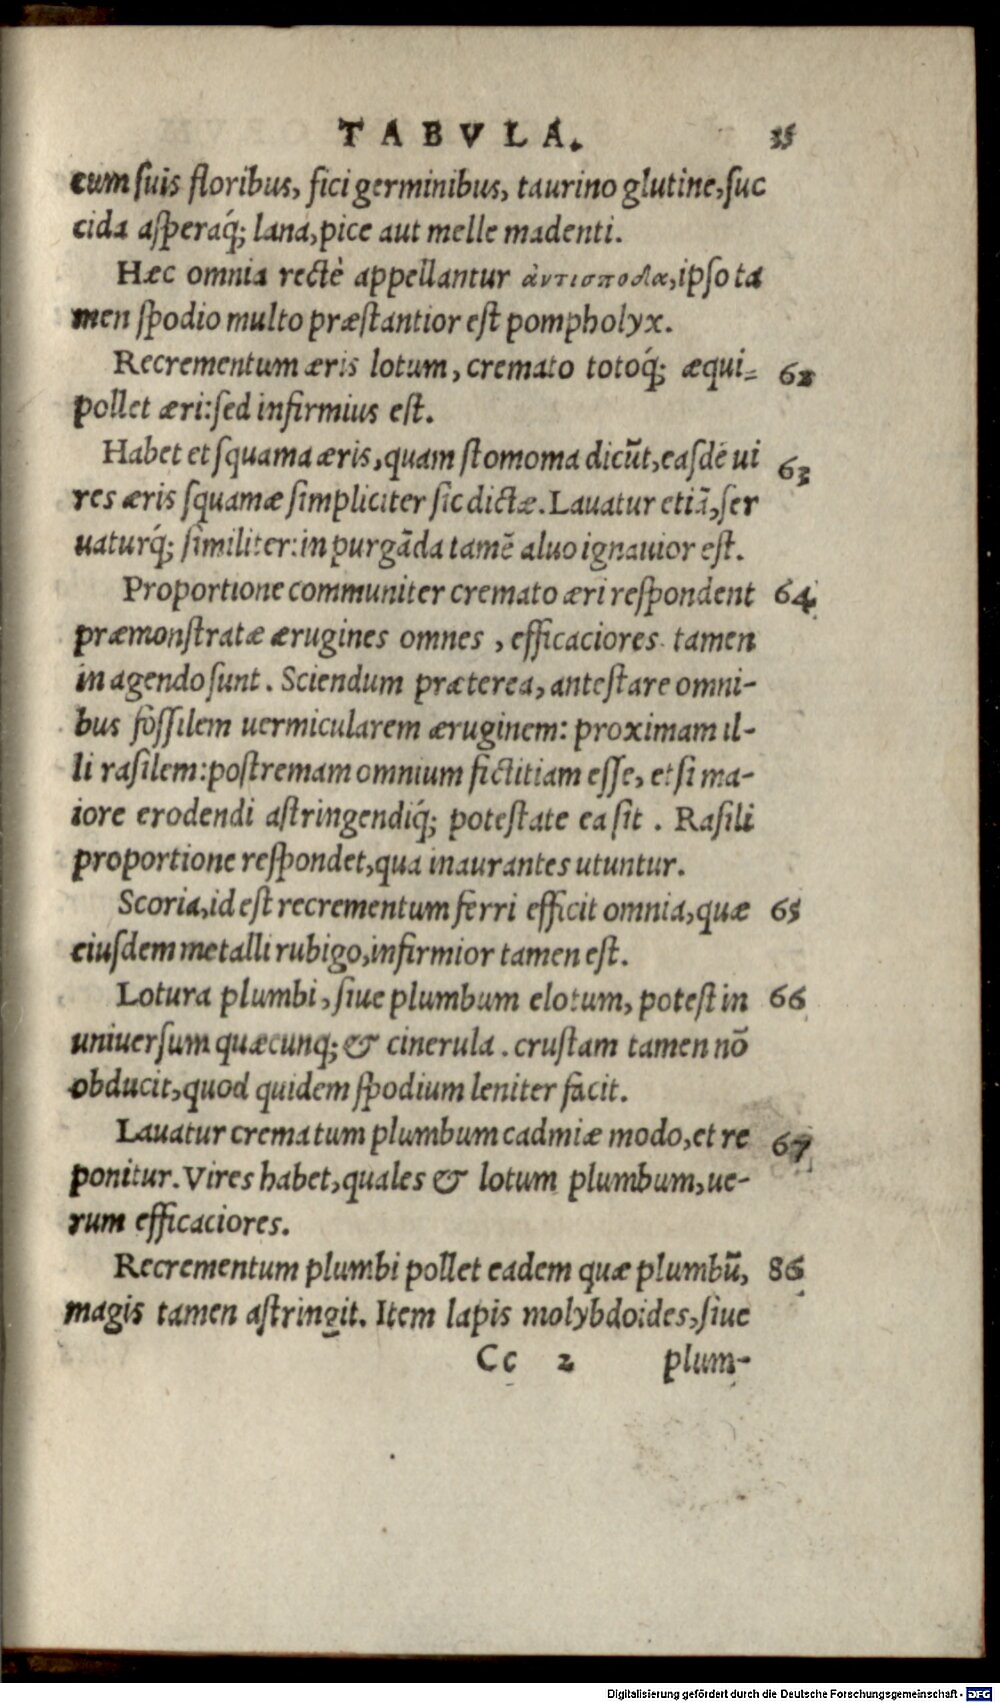 TABVLA. 35
cum suis floribus, fici germinibus, taurino glutine, suc
cida asperaq́; lana, pice aut melle madenti.
Hæc omnia rectè appellantur ἀντισποδα, ipso ta
men spodio multo præstantior est pompholyx.
Recrementum æris lotum, cremato totoq́; æqui- 62
pollet æri: sed infirmius est.
Habet et squama æris, quam stomoma dicũt, easdē ui 63
res æris squamæ simpliciter sic dictæ. Lauatur etiā, ser
uaturq́; similiter: in purgāda tamē aluo ignauior est.
Proportione communiter cremato æri respondent 64
præmonstratæ ærugines omnes, efficaciores tamen
in agendo sunt. Sciendum præterea, antestare omni-
bus fossilem uermicularem æruginem: proximam il-
li rasilem: postremam omnium fictitiam esse, et si ma-
iore erodendi astringendiq́; potestate ea sit. Rasili
proportione respondet, qua inaurantes utuntur.
Scoria, id est recrementum ferri efficit omnia, quæ 65
eiusdem metalli rubigo, infirmior tamen est.
Lotura plumbi, siue plumbum elotum, potest in 66
uniuersum quæcunq; & cinerula. crustam tamen nō
obducit, quod quidem spodium leniter facit.
Lauatur crematum plumbum cadmiæ modo, et re 67
ponitur. Vires habet, quales & lotum plumbum, ue-
rum efficaciores.
Recrementum plumbi pollet eadem quæ plumbū, 86
magis tamen astringit. Item lapis molybdoides, siue
Cc 2 plum-
Digitalisierung gefördert durch die Deutsche Forschungsgemeinschaft - DFG